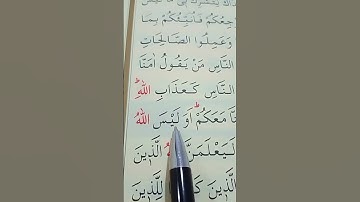 لِتُشْرِكَ بِي مَا لَيْسَ
جِعُكُمْ فَاُنَبِّئُكُمْ بِمَا
وَعَمِلُوا الصَّالِحَاتِ
النَّاسِ مَنْ يَقُولُ اٰمَنَّا
النَّاسِ كَعَذَابِ اللّٰهِۜ
نَّا مَعَكُمْۜ اَوَلَيْسَ اللّٰهُ
لَيَعْلَمَنَّ الَّذ۪ينَ
الَّذ۪ينَ لِلَّذ۪ينَ